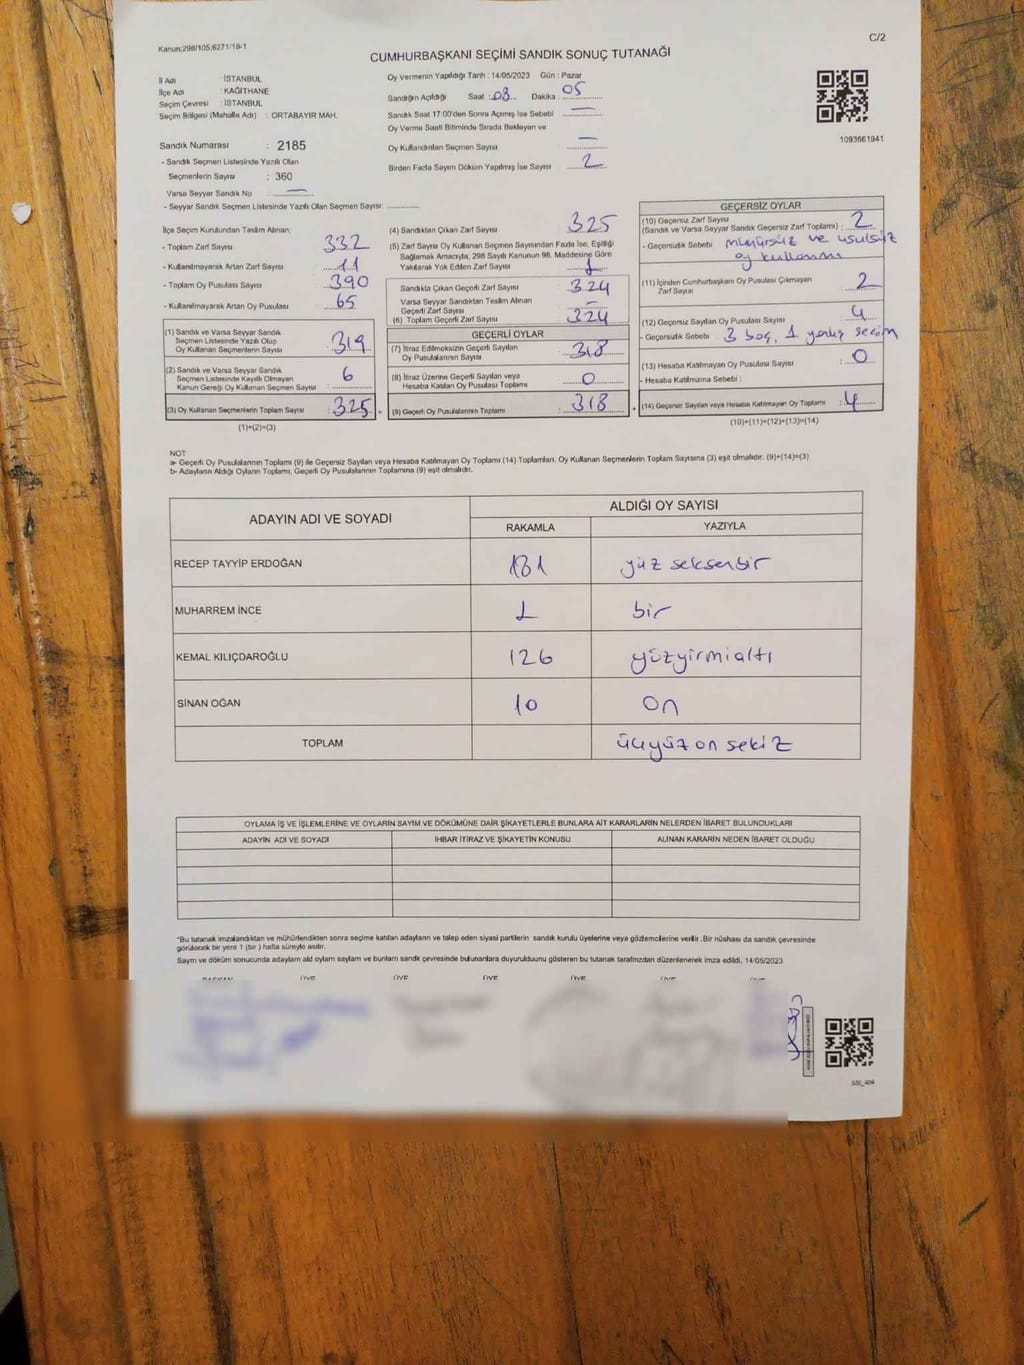 Kanun:298/105,6271/18-1
C/2
CUMHURBAŞKANI SEÇİMİ SANDIK SONUÇ TUTANAĞI
İl Adı : İSTANBUL
İlçe Adı : KAĞITHANE
Seçim Çevresi : İSTANBUL
Seçim Bölgesi (Mahalle Adı) : ORTABAYIR MAH.
Sandık Numarası : 2185
- Sandık Seçmen Listesinde Yazılı Olan
Seçmenlerin Sayısı : 360
Varsa Seyyar Sandık No : —
- Seyyar Sandık Seçmen Listesinde Yazılı Olan Seçmen Sayısı: ..........
Oy Vermenin Yapıldığı Tarih : 14/05/2023 Gün : Pazar
Sandığın Açıldığı Saat : 08 Dakika : 05
Sandık Saat 17:00'den Sonra Açılmış İse Sebebi : —
Oy Verme Saati Bitiminde Sırada Bekleyen ve
Oy Kullandırılan Seçmen Sayısı : —
Birden Fazla Sayım Döküm Yapılmış İse Sayısı : 2
1093661941
İlçe Seçim Kurulundan Teslim Alınan;
- Toplam Zarf Sayısı : 332
- Kullanılmayarak Artan Zarf Sayısı : 11
- Toplam Oy Pusulası Sayısı : 390
- Kullanılmayarak Artan Oy Pusulası : 65
(1) Sandık ve Varsa Seyyar Sandık
Seçmen Listesinde Yazılı Olup
Oy Kullanan Seçmenlerin Sayısı : 319
(2) Sandık ve Varsa Seyyar Sandık
Seçmen Listesinde Kayıtlı Olmayan
Kanun Gereği Oy Kullanan Seçmen Sayısı : 6
(3) Oy Kullanan Seçmenlerin Toplam Sayısı : 325 =
(1)+(2)=(3)
(4) Sandıktan Çıkan Zarf Sayısı : 325
(5) Zarf Sayısı Oy Kullanan Seçmen Sayısından Fazla İse, Eşitliği
Sağlamak Amacıyla; 298 Sayılı Kanunun 98. Maddesine Göre
Yakılarak Yok Edilen Zarf Sayısı : 1
Sandıkta Çıkan Geçerli Zarf Sayısı : 324
Varsa Seyyar Sandıktan Teslim Alınan
Geçerli Zarf Sayısı : —
(6) Toplam Geçerli Zarf Sayısı : 324
GEÇERLİ OYLAR
(7) İtiraz Edilmeksizin Geçerli Sayılan
Oy Pusulalarının Sayısı : 318
(8) İtiraz Üzerine Geçerli Sayılan veya
Hesaba Katılan Oy Pusulası Toplamı : 0
(9) Geçerli Oy Pusulalarının Toplamı : 318 +
GEÇERSİZ OYLAR
(10) Geçersiz Zarf Sayısı
(Sandık ve Varsa Seyyar Sandık Geçersiz Zarf Toplamı) : 2
- Geçersizlik Sebebi : mühürsüz ve usulsüz
oy kullanımı
(11) İçinden Cumhurbaşkanı Oy Pusulası Çıkmayan
Zarf Sayısı : 2
(12) Geçersiz Sayılan Oy Pusulası Sayısı : 4
- Geçersizlik Sebebi : 3 boş, 1 yanlış seçim
(13) Hesaba Katılmayan Oy Pusulası Sayısı : 0
- Hesaba Katılmama Sebebi :
(14) Geçersiz Sayılan veya Hesaba Katılmayan Oy Toplamı : 4
(10)+(11)+(12)+(13)=(14)
NOT:
a- Geçerli Oy Pusulalarının Toplamı (9) ile Geçersiz Sayılan veya Hesaba Katılmayan Oy Toplamı (14) Toplamları, Oy Kullanan Seçmenlerin Toplam Sayısına (3) eşit olmalıdır. (9)+(14)=(3)
b- Adayların Aldığı Oyların Toplamı, Geçerli Oy Pusulalarının Toplamına (9) eşit olmalıdır.
ADAYIN ADI VE SOYADI
ALDIĞI OY SAYISI
RAKAMLA YAZIYLA
RECEP TAYYİP ERDOĞAN 181 yüz seksenbir
MUHARREM İNCE 1 bir
KEMAL KILIÇDAROĞLU 126 yüzyirmialtı
SİNAN OĞAN 10 on
TOPLAM üçyüz on sekiz
OYLAMA İŞ VE İŞLEMLERİNE VE OYLARIN SAYIM VE DÖKÜMÜNE DAİR ŞİKAYETLERLE BUNLARA AİT KARARLARIN NELERDEN İBARET BULUNDUKLARI
ADAYIN ADI VE SOYADI İHBAR İTİRAZ VE ŞİKAYETİN KONUSU ALINAN KARARIN NEDEN İBARET OLDUĞU
*Bu tutanak imzalandıktan ve mühürlendikten sonra seçime katılan adayların ve talep eden siyasi partilerin sandık kurulu üyelerine veya gözlemcilerine verilir. Bir nüshası da sandık çevresinde
görülecek bir yere 1 (bir) hafta süreyle asılır.
Sayım ve döküm sonucunda adayların aldı oyların sayılanı ve bunların sandık çevresinde bulunanlara duyurulduunu gösteren bu tutanak tarafımızdan düzenlenerek imza edildi. 14/05/2023
BAŞKAN ÜYE ÜYE ÜYE ÜYE ÜYE ÜYE